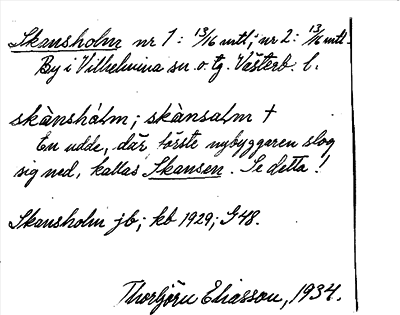 Skansholm nr 1: 13/16 mtl; nr 2: 13/16 mtl.
By i Vilhelmina sn o. tg. Västerb. l.
skànshólm; skànsalm †
En udde, där förste nybyggaren slog
sig ned, kallas Skansen. Se detta!
Skansholm jb; kb 1929; G 48.
Thorbjörn Eliasson, 1934.